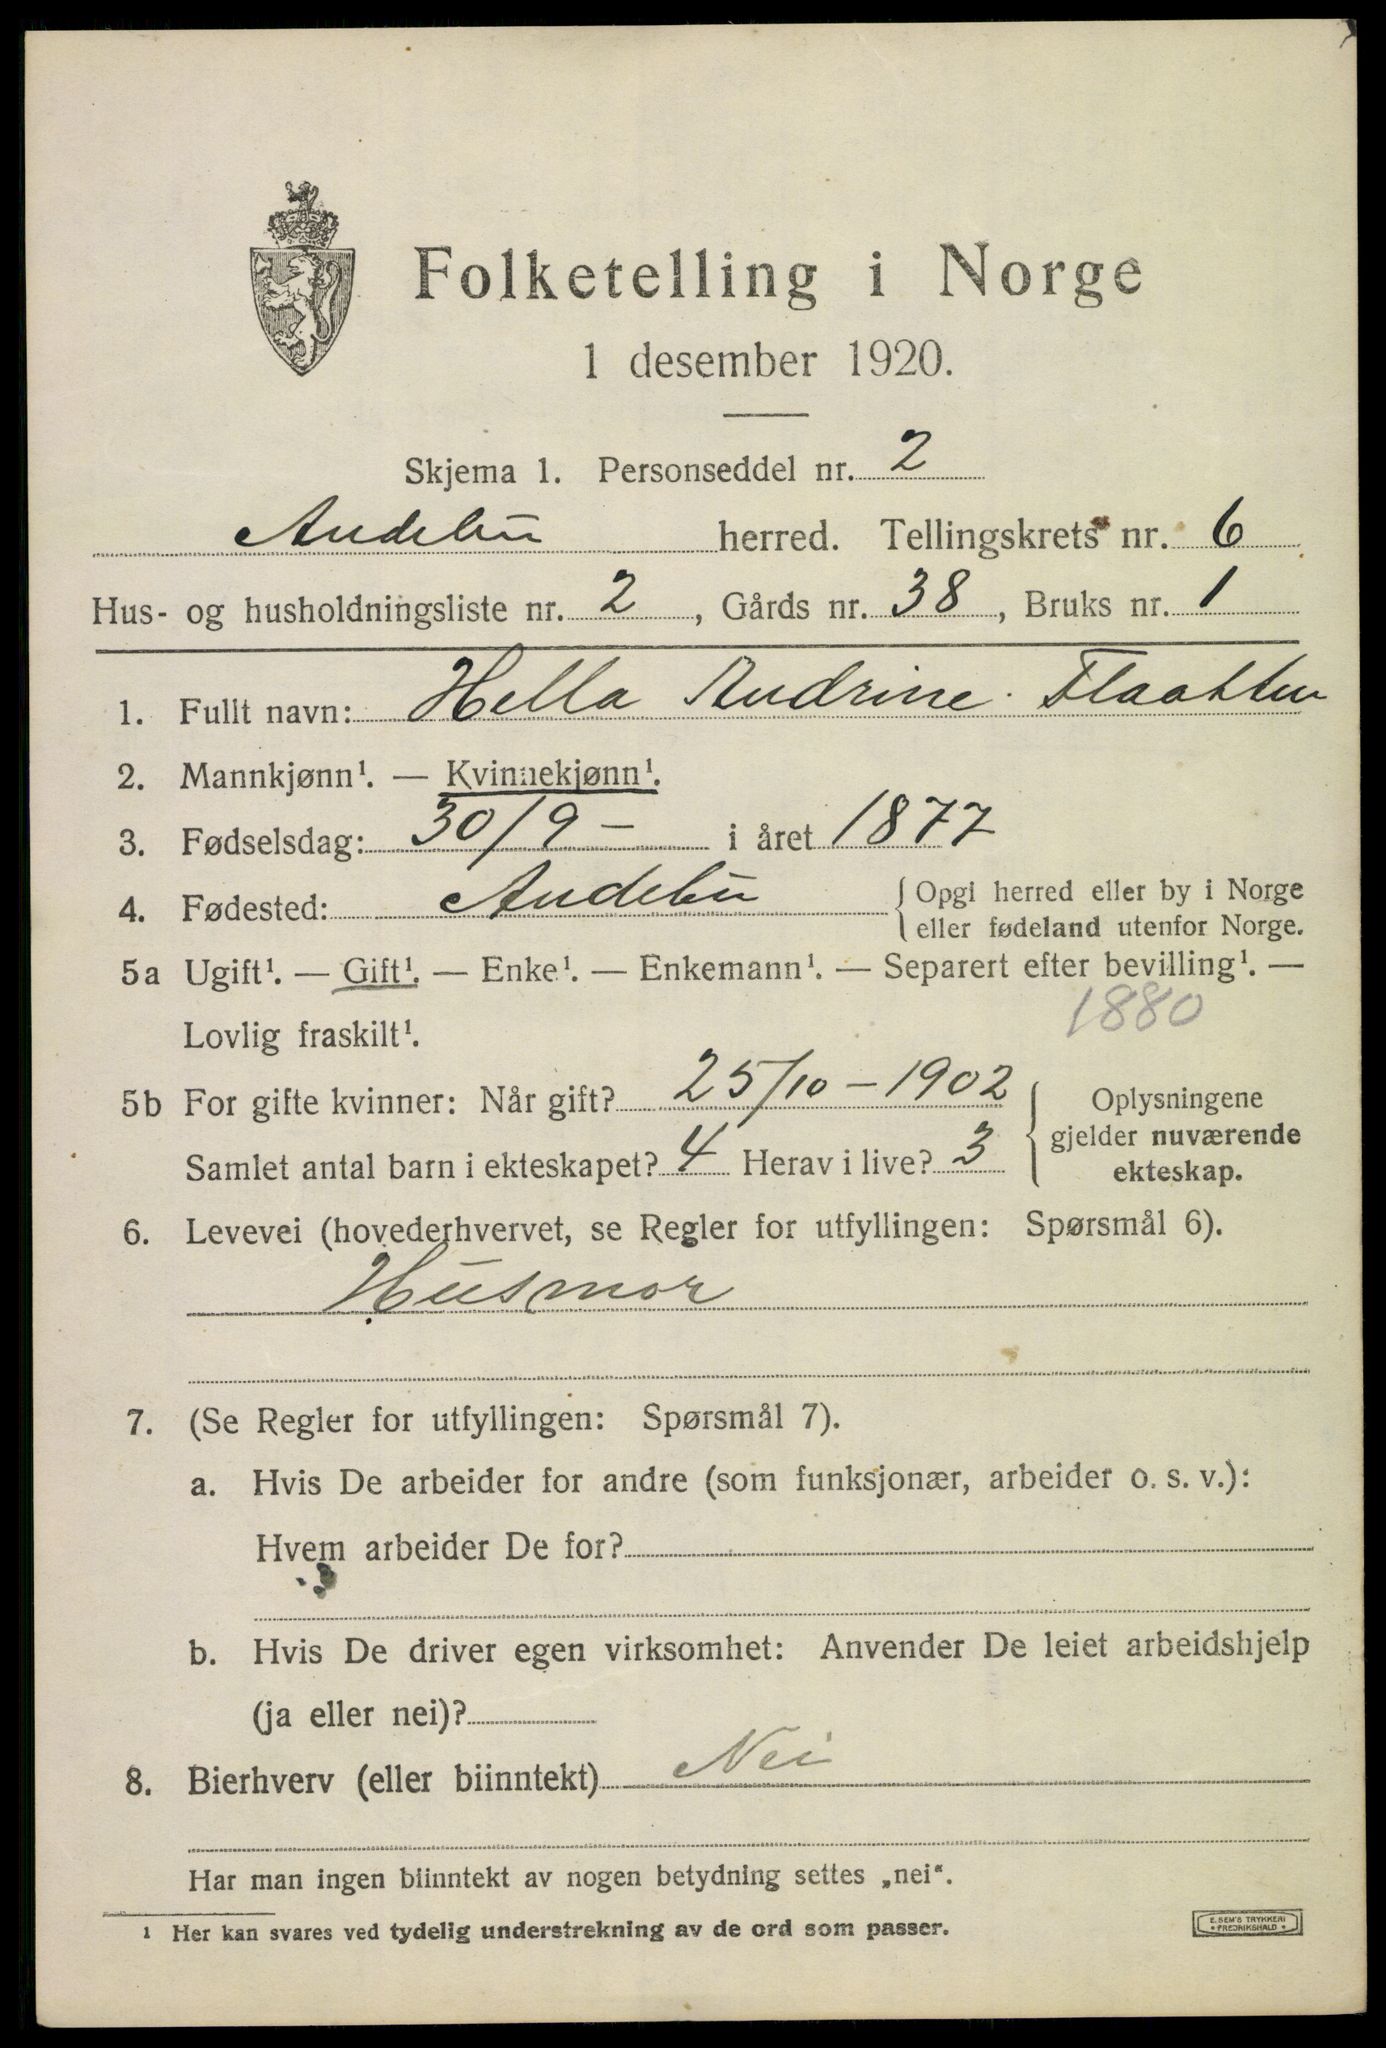 Folketelling i Norge
1 desember 1920.
Skjema 1. Personseddel nr. 2
Andebu herred. Tellingskrets nr. 6
Hus- og husholdningsliste nr. 2, Gårds nr. 38, Bruks nr. 1
1. Fullt navn: Hella Andrine Flaatten
2. Mannkjønn¹. — Kvinnekjønn¹.
3. Fødselsdag: 30/9 - i året 1877
4. Fødested: Andebu { Opgi herred eller by i Norge
eller fødeland utenfor Norge.
5a Ugift¹. — Gift¹. — Enke¹. — Enkemann¹. — Separert efter bevilling¹. —
Lovlig fraskilt¹. 1880
5b For gifte kvinner: Når gift? 25/10 - 1902 { Oplysningene
gjelder nuværende
Samlet antal barn i ekteskapet? 4 Herav i live? 3 ekteskap.
6. Levevei (hovederhvervet, se Regler for utfyllingen: Spørsmål 6).
Husmor
7. (Se Regler for utfyllingen: Spørsmål 7).
a. Hvis De arbeider for andre (som funksjonær, arbeider o. s. v.):
Hvem arbeider De for?
b. Hvis De driver egen virksomhet: Anvender De leiet arbeidshjelp
(ja eller nei)?
8. Bierhverv (eller biinntekt) Nei
Har man ingen biinntekt av nogen betydning settes „nei“.
¹ Her kan svares ved tydelig understrekning av de ord som passer.
E. SEM'S TRYKKERI
• FREDRIKSHALD •